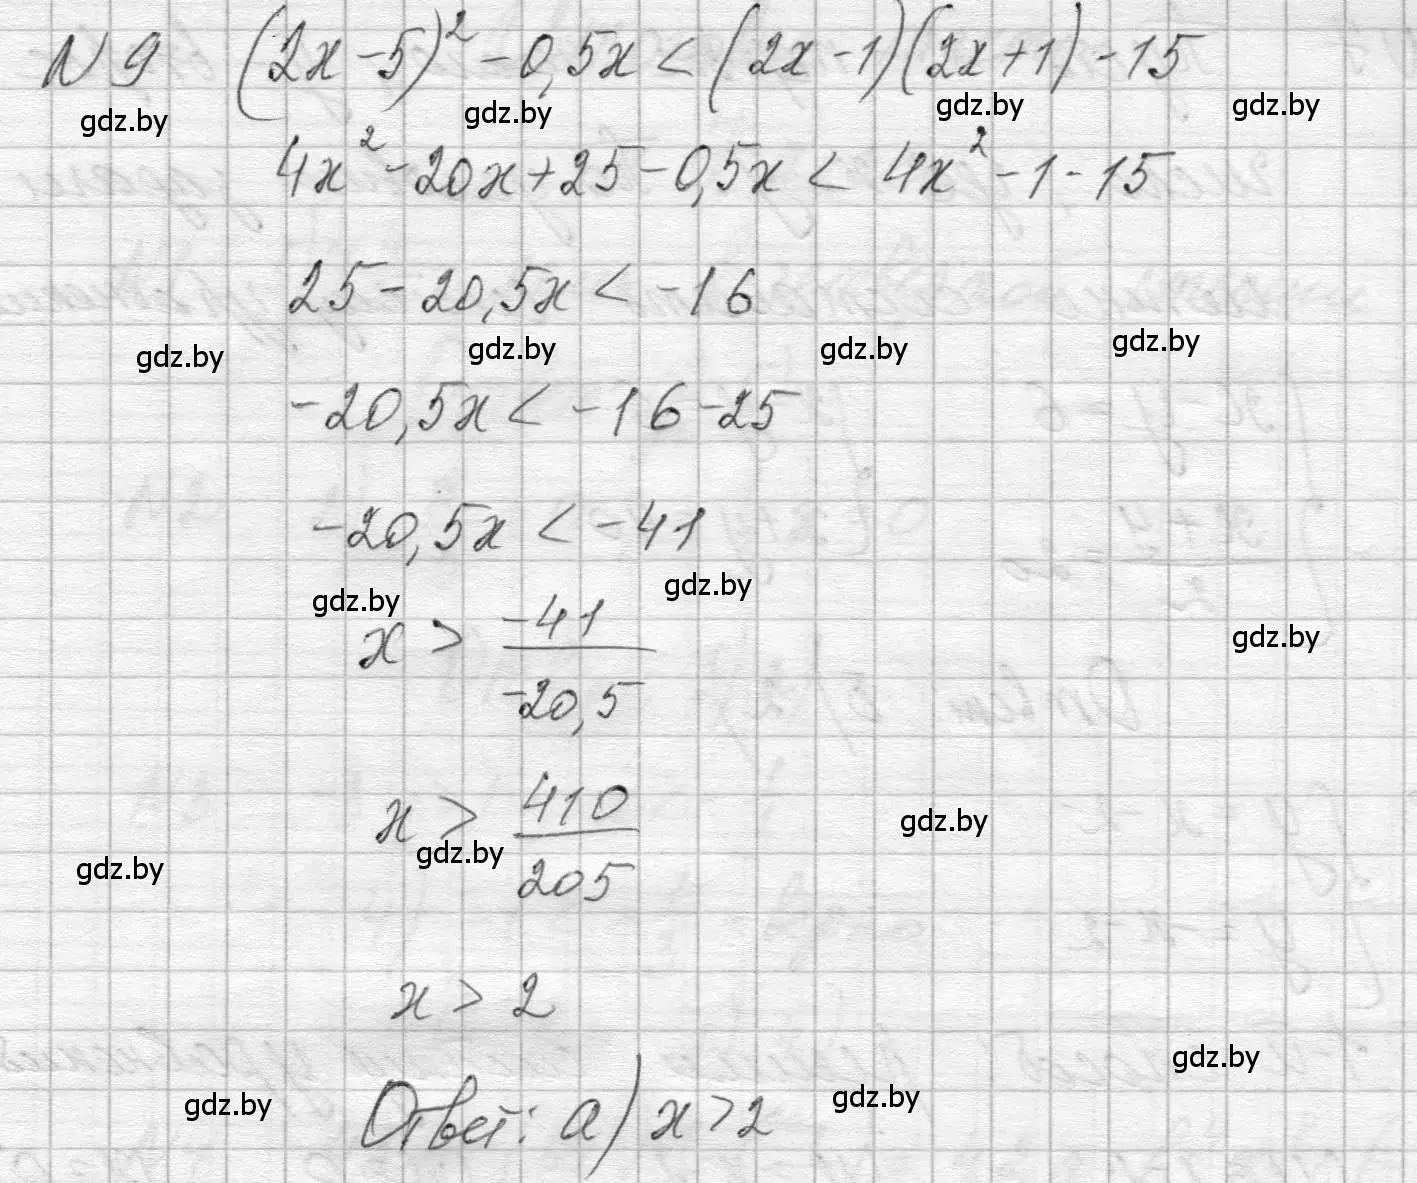 N 9 (2x-5)² - 0,5x < (2x-1)(2x+1) - 15
gdz.by gdz.by gdz.by gdz.by
4x² - 20x + 25 - 0,5x < 4x² - 1 - 15
25 - 20,5x < -16
gdz.by gdz.by gdz.by gdz.by
-20,5x < -16 - 25
-20,5x < -41
gdz.by gdz.by
x > -41/-20,5
gdz.by
x > 410/205
gdz.by gdz.by gdz.by
x > 2
gdz.by
Ответ: а) x > 2
gdz.by gdz.by